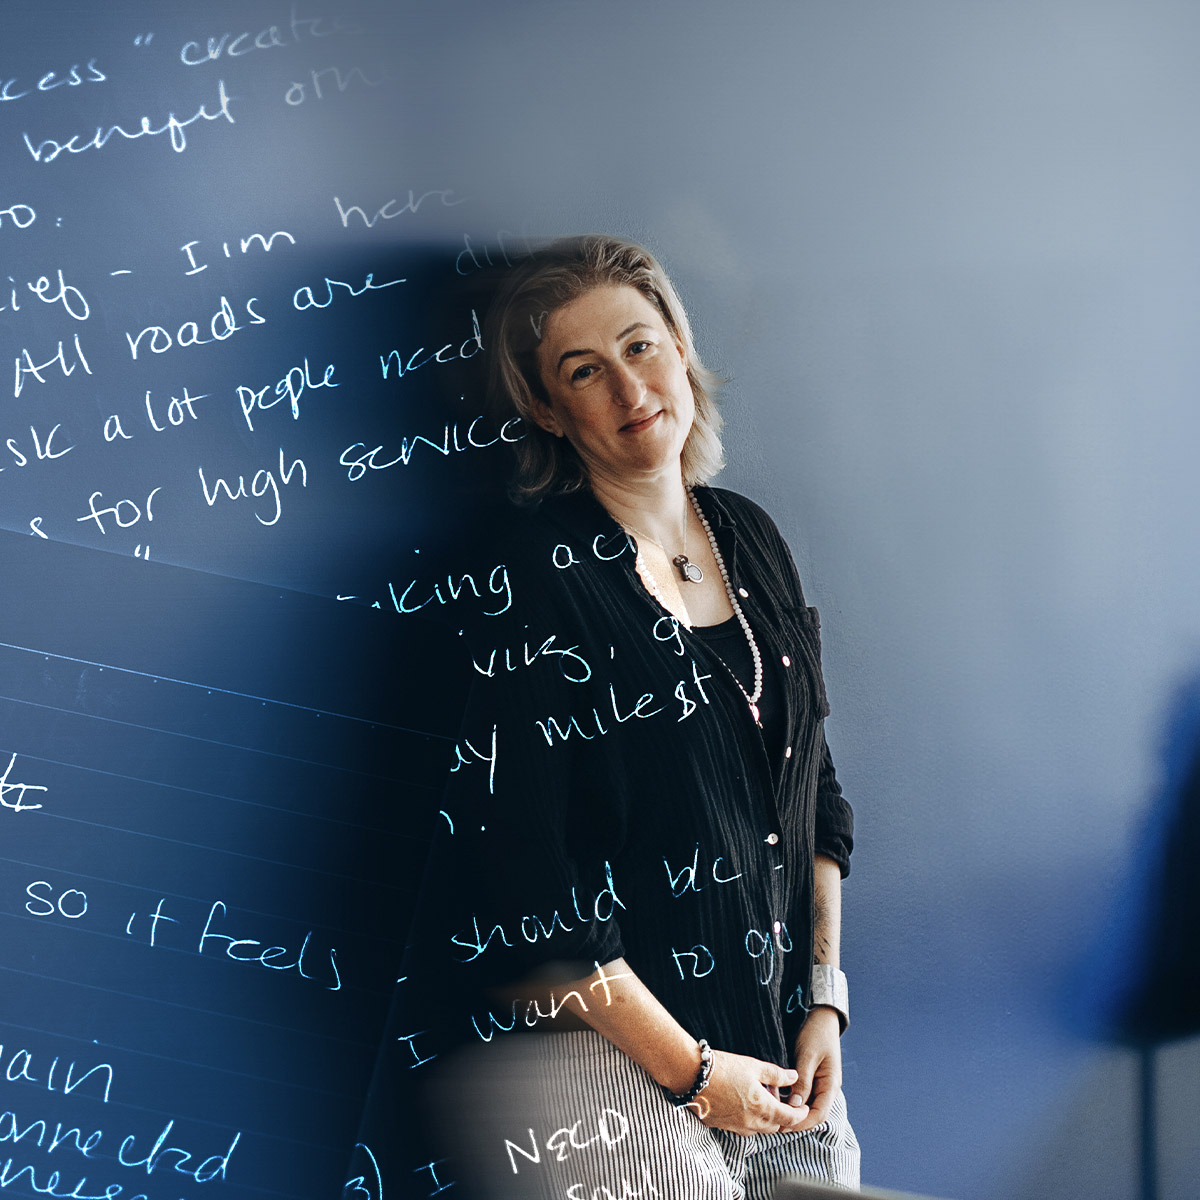 cess " create
benefit oth
oo.
lief - I'm here
All roads are diff
ask a lot people need
s for high service
"
king ac
viiz, g
my milest
so it feels
- should b/c -
I want to go
ain
onnected
3) I NEED
soul